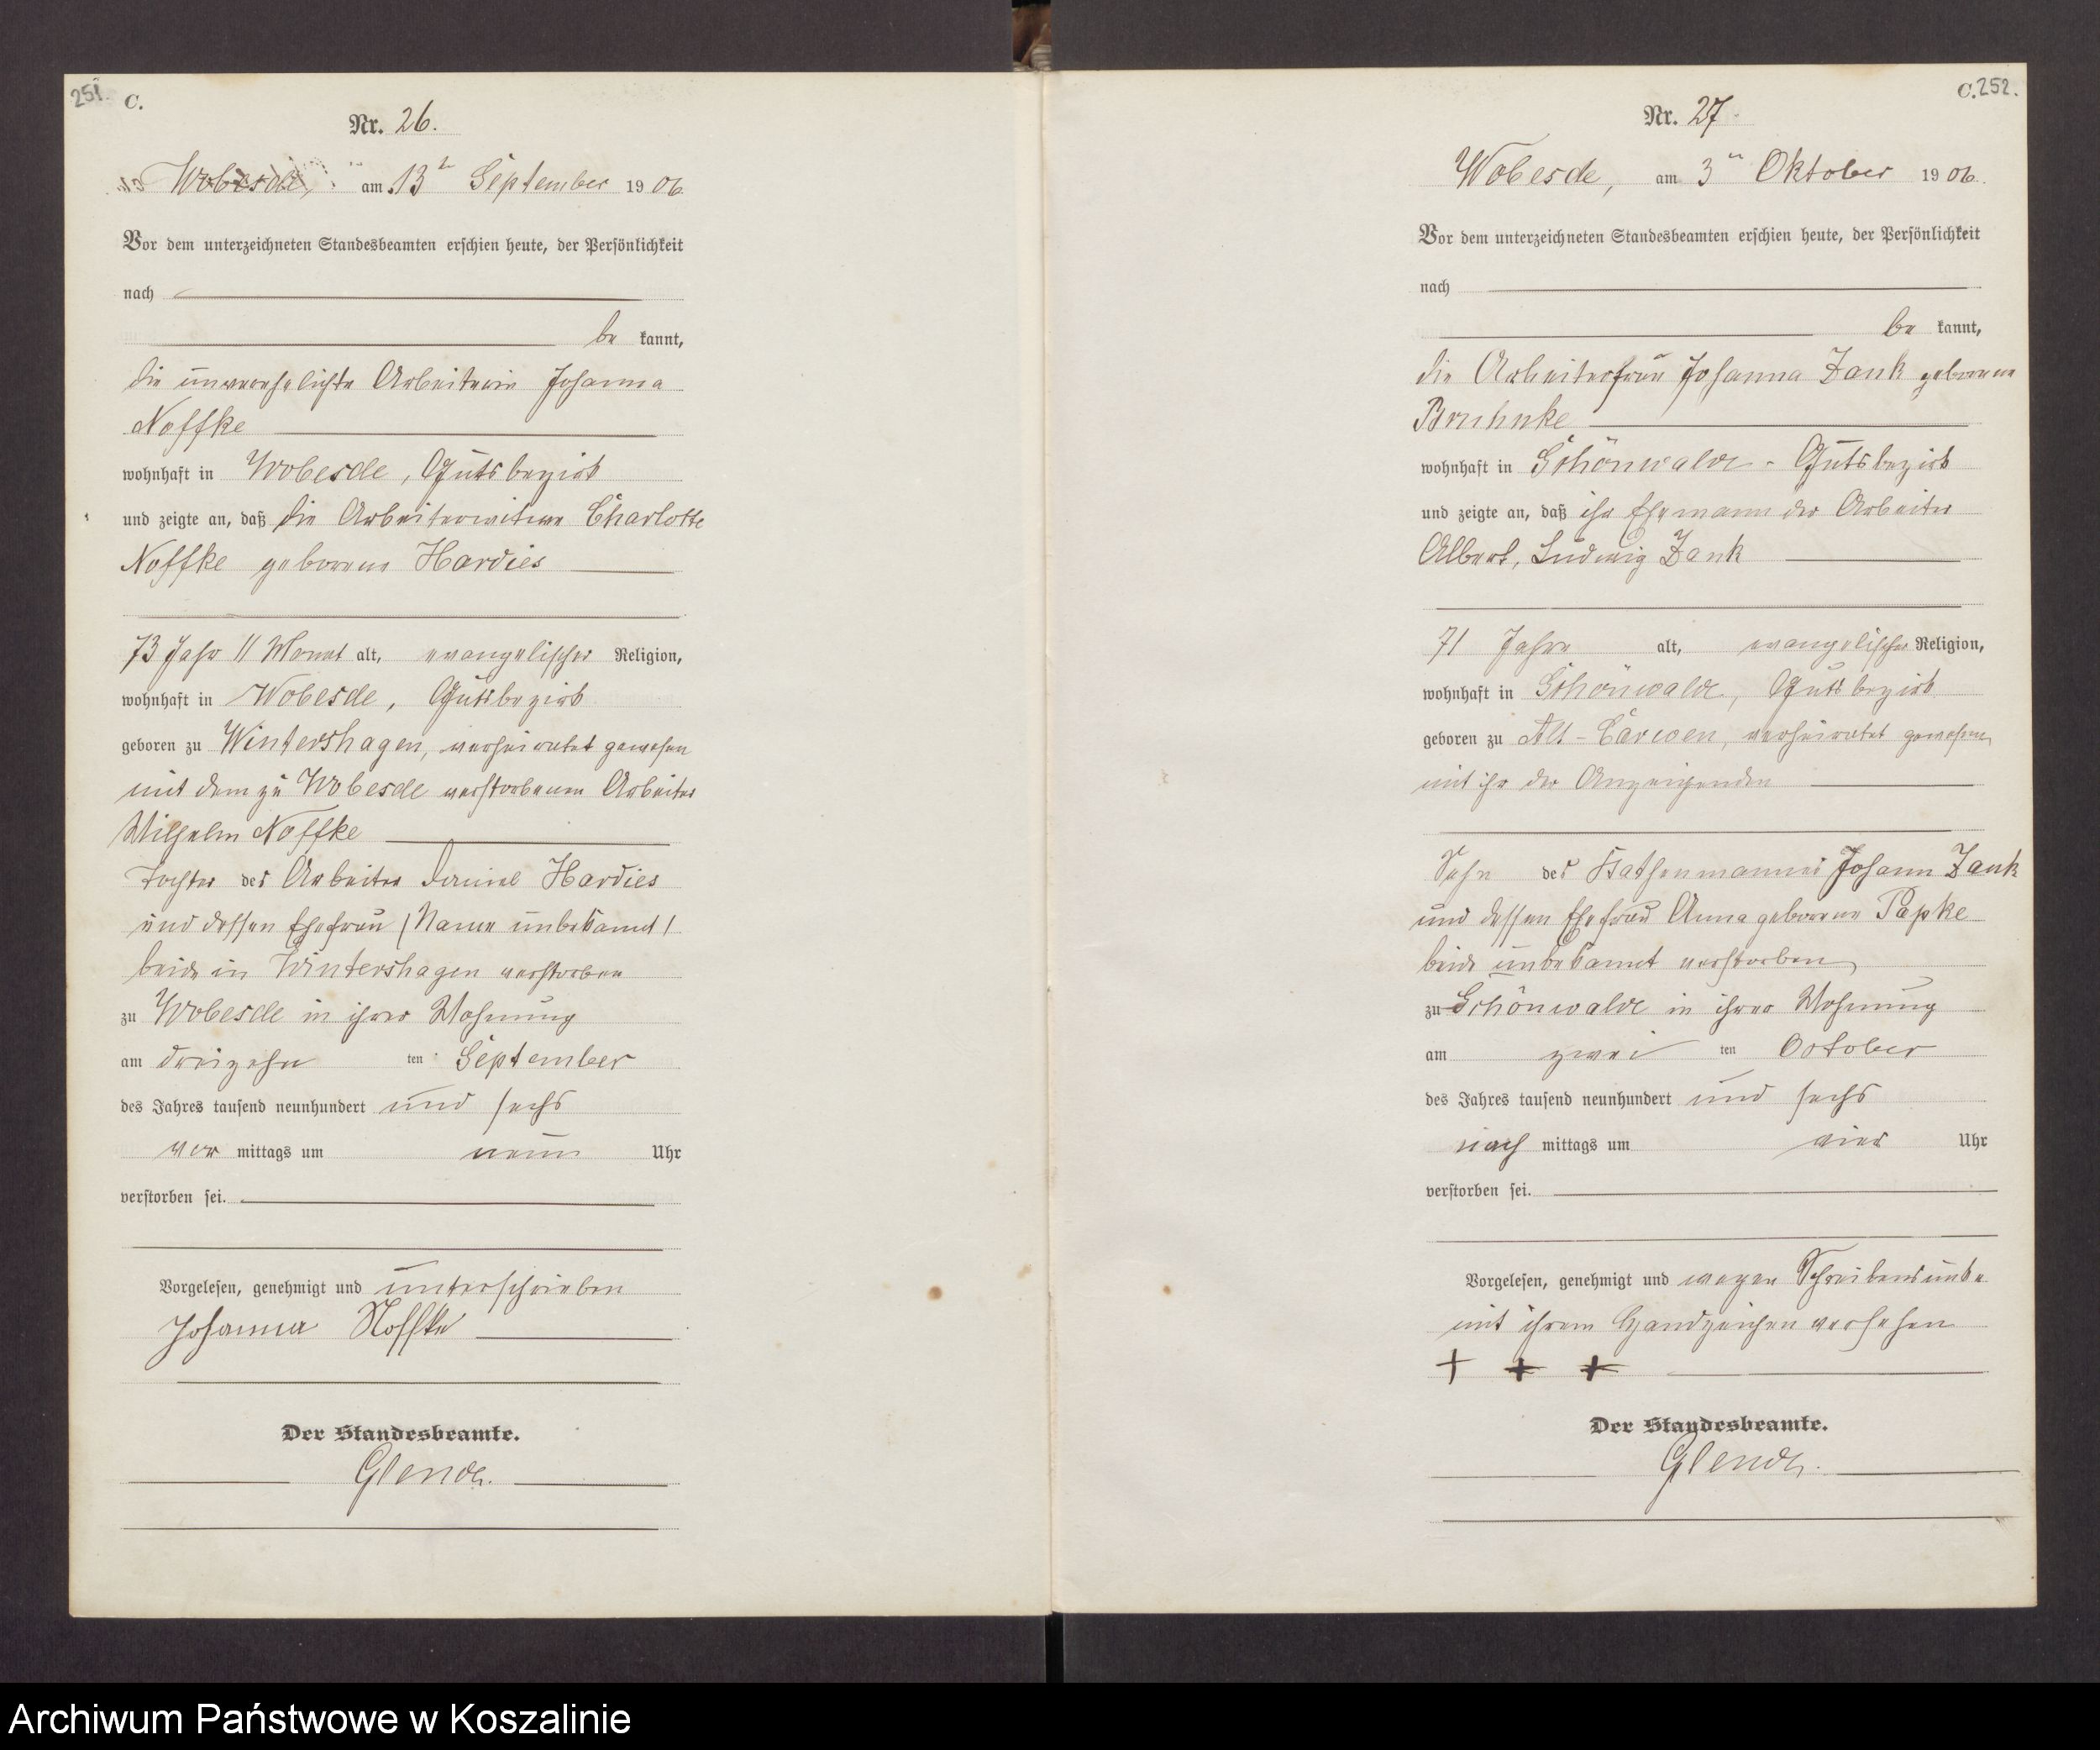 251.
C.
Nr. 26.
Wobesde, am 13 September 1906
Vor dem unterzeichneten Standesbeamten erschien heute, der Persönlichkeit
nach
be kannt,
die unverehelichte Arbeiterin Johanna
Noffke
wohnhaft in Wobesde, Gutsbezirk
und zeigte an, daß die Arbeiterwitwe Charlotte
Noffke geborene Hardies
73 Jahr 11 Monat alt, evangelischer Religion,
wohnhaft in Wobesde, Gutsbezirk
geboren zu Wintershagen, verheiratet gewesen
mit dem zu Wobesde verstorbenen Arbeiter
Wilhelm Noffke
Tochter des Arbeiter Daniel Hardies
und dessen Ehefrau (Name unbekannt)
beide in Wintershagen verstorben
zu Wobesde in ihrer Wohnung
am dreizehn ten September
des Jahres tausend neunhundert und sechs
vor mittags um neun Uhr
verstorben sei.
Vorgelesen, genehmigt und unterschrieben
Johanna Noffke
Der Standesbeamte.
C. 252.
Nr. 27.
Wobesde, am 3 Oktober 1906.
Vor dem unterzeichneten Standesbeamten erschien heute, der Persönlichkeit
nach
be kannt,
die Arbeiterfrau Johanna Zank geborene
Bruhnke
wohnhaft in Schönwalde - Gutsbezirk
und zeigte an, daß ihr Ehemann der Arbeiter
Albert, Ludwig Zank
71 Jahre alt, evangelischer Religion,
wohnhaft in Schönwalde, Gutsbezirk
geboren zu Alt-Carwen, verheiratet gewesen
mit ihr der Anzeigenden
Sohn des Kathenmannes Johann Zank
und dessen Ehefrau Anna geborene Papke
beide unbekannt verstorben
zu Schönwalde in ihrer Wohnung
am zwei ten October
des Jahres tausend neunhundert und sechs
nach mittags um vier Uhr
verstorben sei.
Vorgelesen, genehmigt und wegen Schreibensunke
mit ihrem Handzeichen versehen
+ + +
Der Standesbeamte.
Archiwum Państwowe w Koszalinie